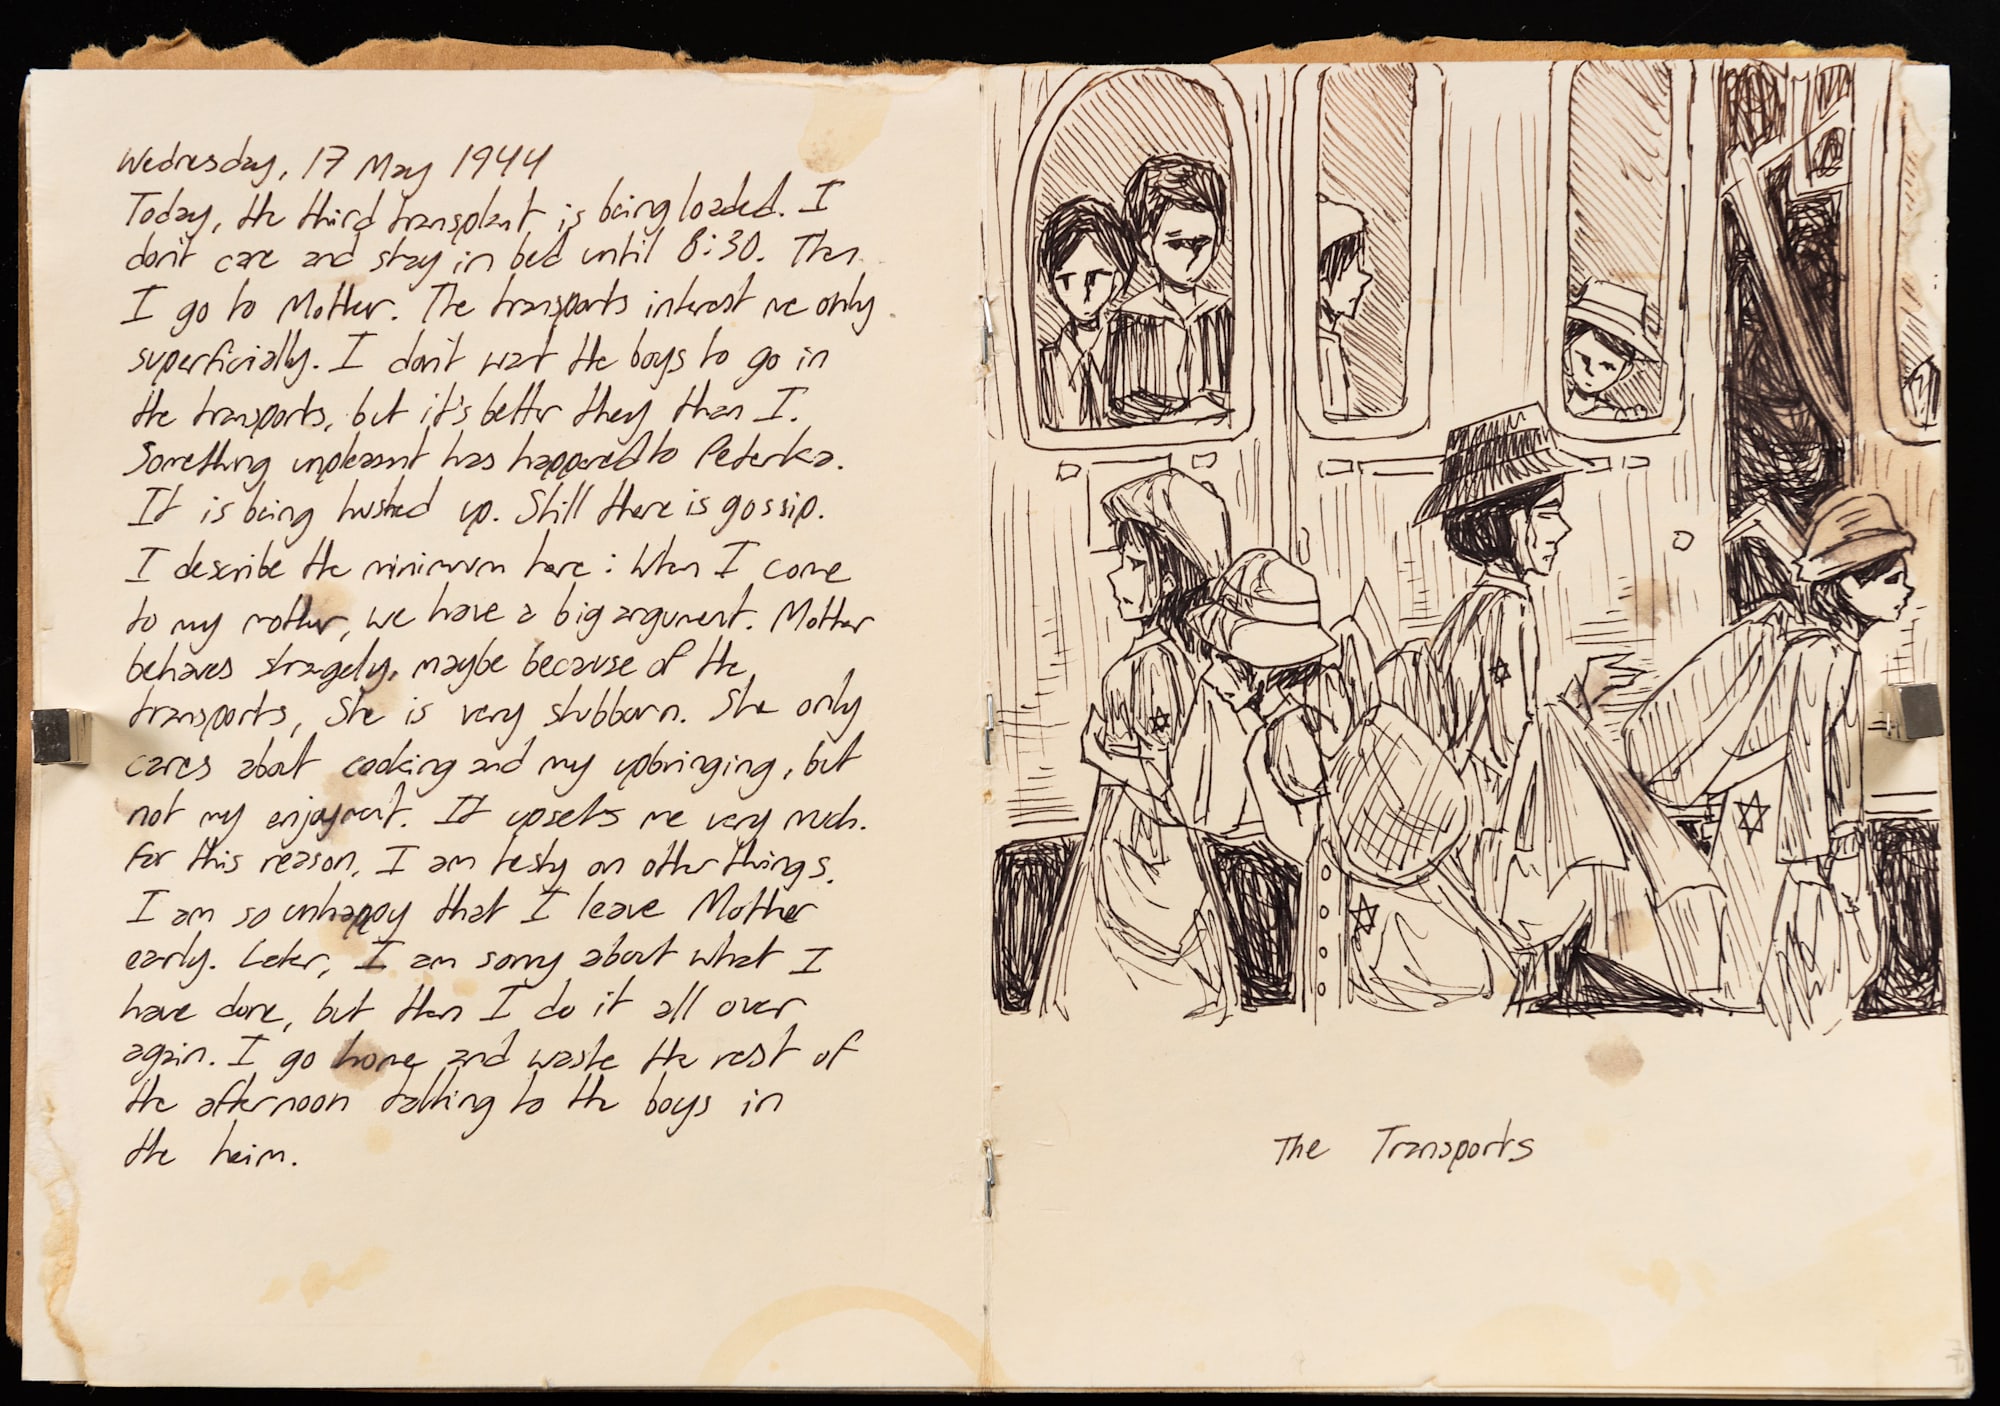 Wednesday, 17 May 1944
Today, the third transplant is being loaded. I
don't care and stay in bed until 8:30. Then
I go to Mother. The transports interest me only
superficially. I don't want the boys to go in
the transports, but it's better they than I.
Something unpleasant has happened to Peterka.
It is being hushed up. Still there is gossip.
I describe the minimum here: When I come
to my mother, we have a big argument. Mother
behaves stragely, maybe because of the
transports, She is very stubborn. She only
cares about cooking and my upbringing, but
not my enjoyment. It upsets me very much.
For this reason, I am testy on other things.
I am so unhappy that I leave Mother
early. Later, I am sorry about what I
have done, but then I do it all over
again. I go home and waste the rest of
the afternoon talking to the boys in
the heim.
The Transports